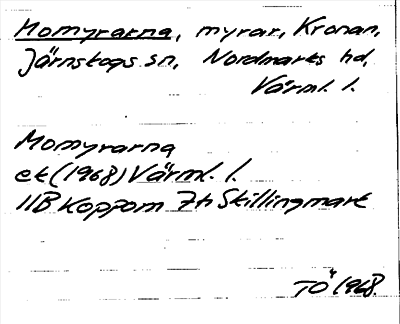 Momyrarna, myrar, Kronan,
Järnskogs sn, Nordmarks hd,
Värml. l.
Momyrarna
ek (1968) Värml. l.
11B Koppom 7h Skillingmark
TÖ 1968